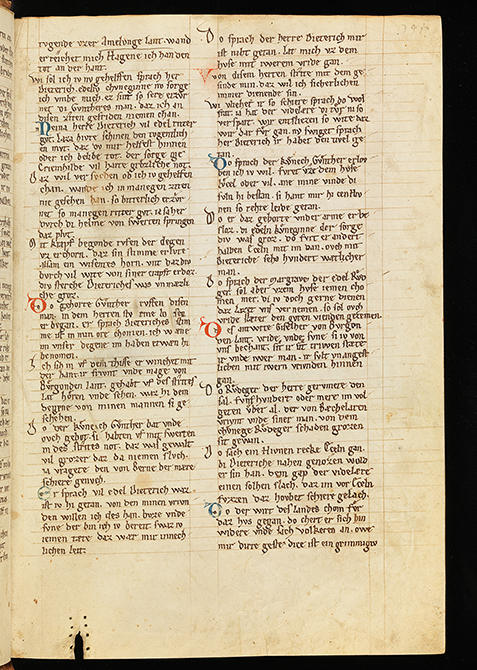 tugende vzer Amelunge lant. wand
erreichet mich Hagene ich han den
tot an der hant.
Wi sol ich iv nv gehelffen sprach her
Dieterich edeliv chvneginne nv sorge
ich vmbe mich. ez sint so sere erzvr
net di Gvntheres man. daz ich an
disen ziten gefriden niemen chan.
Neina herre Dieterich vil edel ritter
gvt. la hivte schinen din tugentlich
en mvt. daz dv mir helfest hinnen
oder ich belibe tot. der sorge
Criemhilde vil harte grozliche not.
Daz wil versvochen ob ich iv gehelffen
chan. wande ich in manegen ziten
nie gesehen han. so bitterlich erzvr
net so manegen ritter gvt. ia sihe
dvrch di helme von swerten springen
daz blvt.
Mit krapft begvnde rvfen der degen
vz erchorn. daz sin stimme erlvte
alsam ein wisentes horn. vnt daz div
bvrch vil wite von siner crapft erdoz.
div sterche Dieteriches was vnmaz
che groz.
Do gehorte Gvnther rvffen disen
man. in dem herten stvrme losen
er began. er sprach Dieteriches stim
me ist in min ore chomen. ich wæne
im vnser degene im haben etwan hi
benomen.
Ich sih in vf dem tische er winchet mit
der hant. ir frivnt vnde mage von
Burgonden lant. gehabt vf des strites
lat horen vnde sehen. waz hi dem
degene von minen mannen si ge
schehen.
Do der kvnich Gvnther bat vnde
ovch gebot. si habten vf mit swerten
in des strites not. daz was gewalt
vil grozer daz da niemen slvch.
er vragete den von Berne der mære
schiere genvch.
Er sprach vil edel Dieterich waz
ist iv hi getan. von den minen frivn
den willen ich des han. bvze vnde
svne der bin ich iv bereit swaz iv
iemen tæte daz wær mir innech
lichen leit.
Do sprach der herre Dieterich mir
ist nibt getan. Lat mich vz dem
hvse mit iwerem vride gan.
von disem herten strite mit dem ge
sinde min. daz wil ich sicherlichen
immer dienende sin.
Wi vlehet ir so schiere sprach do Wolf
hart. ia hat der videlære di tvr nie so
verspart. wir entsliezen si wite daz
wir dar fvr gan. nv swiget sprach
her Dieterich ir habet den tivel ge
tan.
Do sprach der kvnich Gvnther erlov
ben ich iv wil. fvret vz dem hvse
lvcel oder vil. ane mine vinde di
svln hi bestan. si hant mir hi cen Hiv
nen so rehte leide getan.
Do er daz gehorte vnder arme er be
sloz. di edeln kvneginne der sorge
div was groz. do fvrt er anderr
halben Eceln mit im dan. ovch mit
Dieteriche sehs hvndert wætlicher
man.
Do sprach der margrave der edel Rvde
ger. sol aber vzem hvse iemen cho
men mer. di iv doch gerne dienen
daz lazet vns vernemen. so sol ovch
vride stæter den gvten vrivnden gezemen.
Des antwrte Giselher von Bvrgon
den lant. vride vnde svne si iv von
vns bechant. sit ir sit triwen stæte
ir vnde iwer man. ir sult vnangest
lichen mit iwern vrivnden hinnen
gan.
Do Rvdeger der herre gervmete den
sal. fvnf hvndert oder mere im vol
geten vber al. der von Bechelaren
vrivnt vnde siner man. von dem
chvnege Rvdeger schaden grozen
sit gewan.
Do sach ein Hivnen recke Eceln gan.
bi Dieteriche nahen genozen wold
er sin han. dem gap der videlære
einen solhen slach. daz im vor Eceln
fvzzen daz hovbet schiere gelach.
Do der wirt des landes chom fvr
daz hvs gegan. do chert er sich hin
widere vnde sach Volkeren an. owe
mir dirre geste ditze ist ein grimmigiv